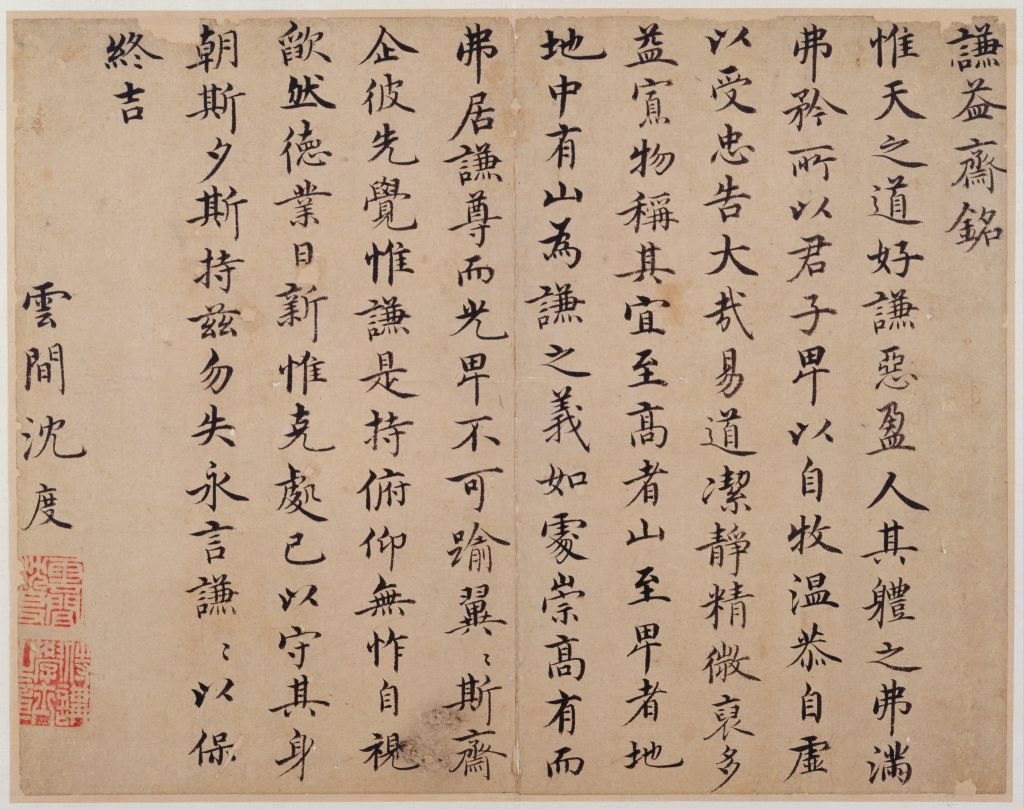 謙益齋銘
惟天之道好謙惡盈人其體之弗滿
弗矜所以君子卑以自牧温恭自虛
以受忠告大哉易道潔靜精微裒多
益寡物稱其宜至高者山至卑者地
地中有山為謙之義如處崇高有而
弗居謙尊而光卑不可踰翼〻斯齋
企彼先覺惟謙是持俯仰無怍自視
欿然德業日新惟克處己以守其身
朝斯夕斯持茲勿失永言謙〻以保
終吉
雲間沈度